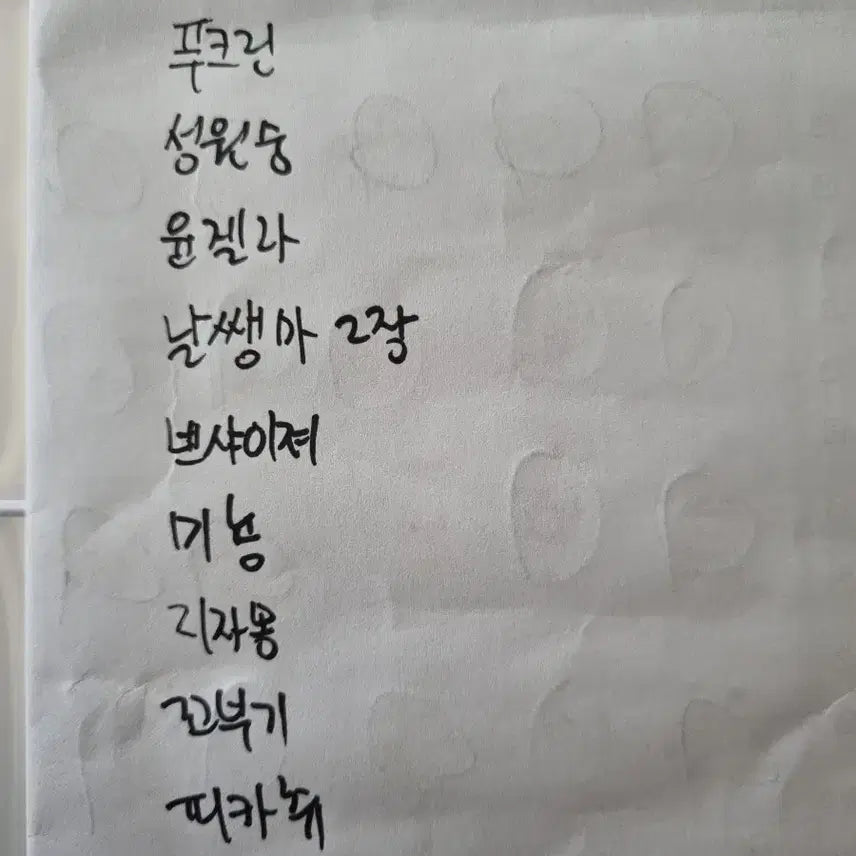 푸크린
성원숭
윤겔라
날쌩마 2장
썬샤이져
미뇽
리자몽
꼬부기
피카츄